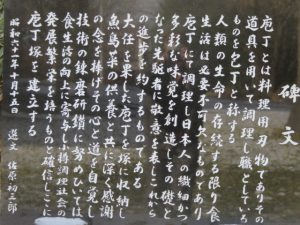 碑文
庖丁とは料理用刃物でありその
道具を用いて調理し職としている
ものを庖丁と称する
人類の生命の存続する限り食
生活は必要不可欠なものであり
庖丁にて調理し日本人の繊細かつ
多彩な味覚を創造しその礎と
なった先駆者に敬意を表しこれから
の進歩を約するものである
大任を果した庖丁を塚に収納し
魚鳥菜の供養と共に深く感謝
の念を捧げその心と道を自覚し
技術の錬磨研鑚に努めひいては
食生活の向上に寄与し小樽調理社会の
発展繁栄を培うものと確信しここに
庖丁塚を建立する
昭和六十二年十月十五日
選文 佐原初三郎